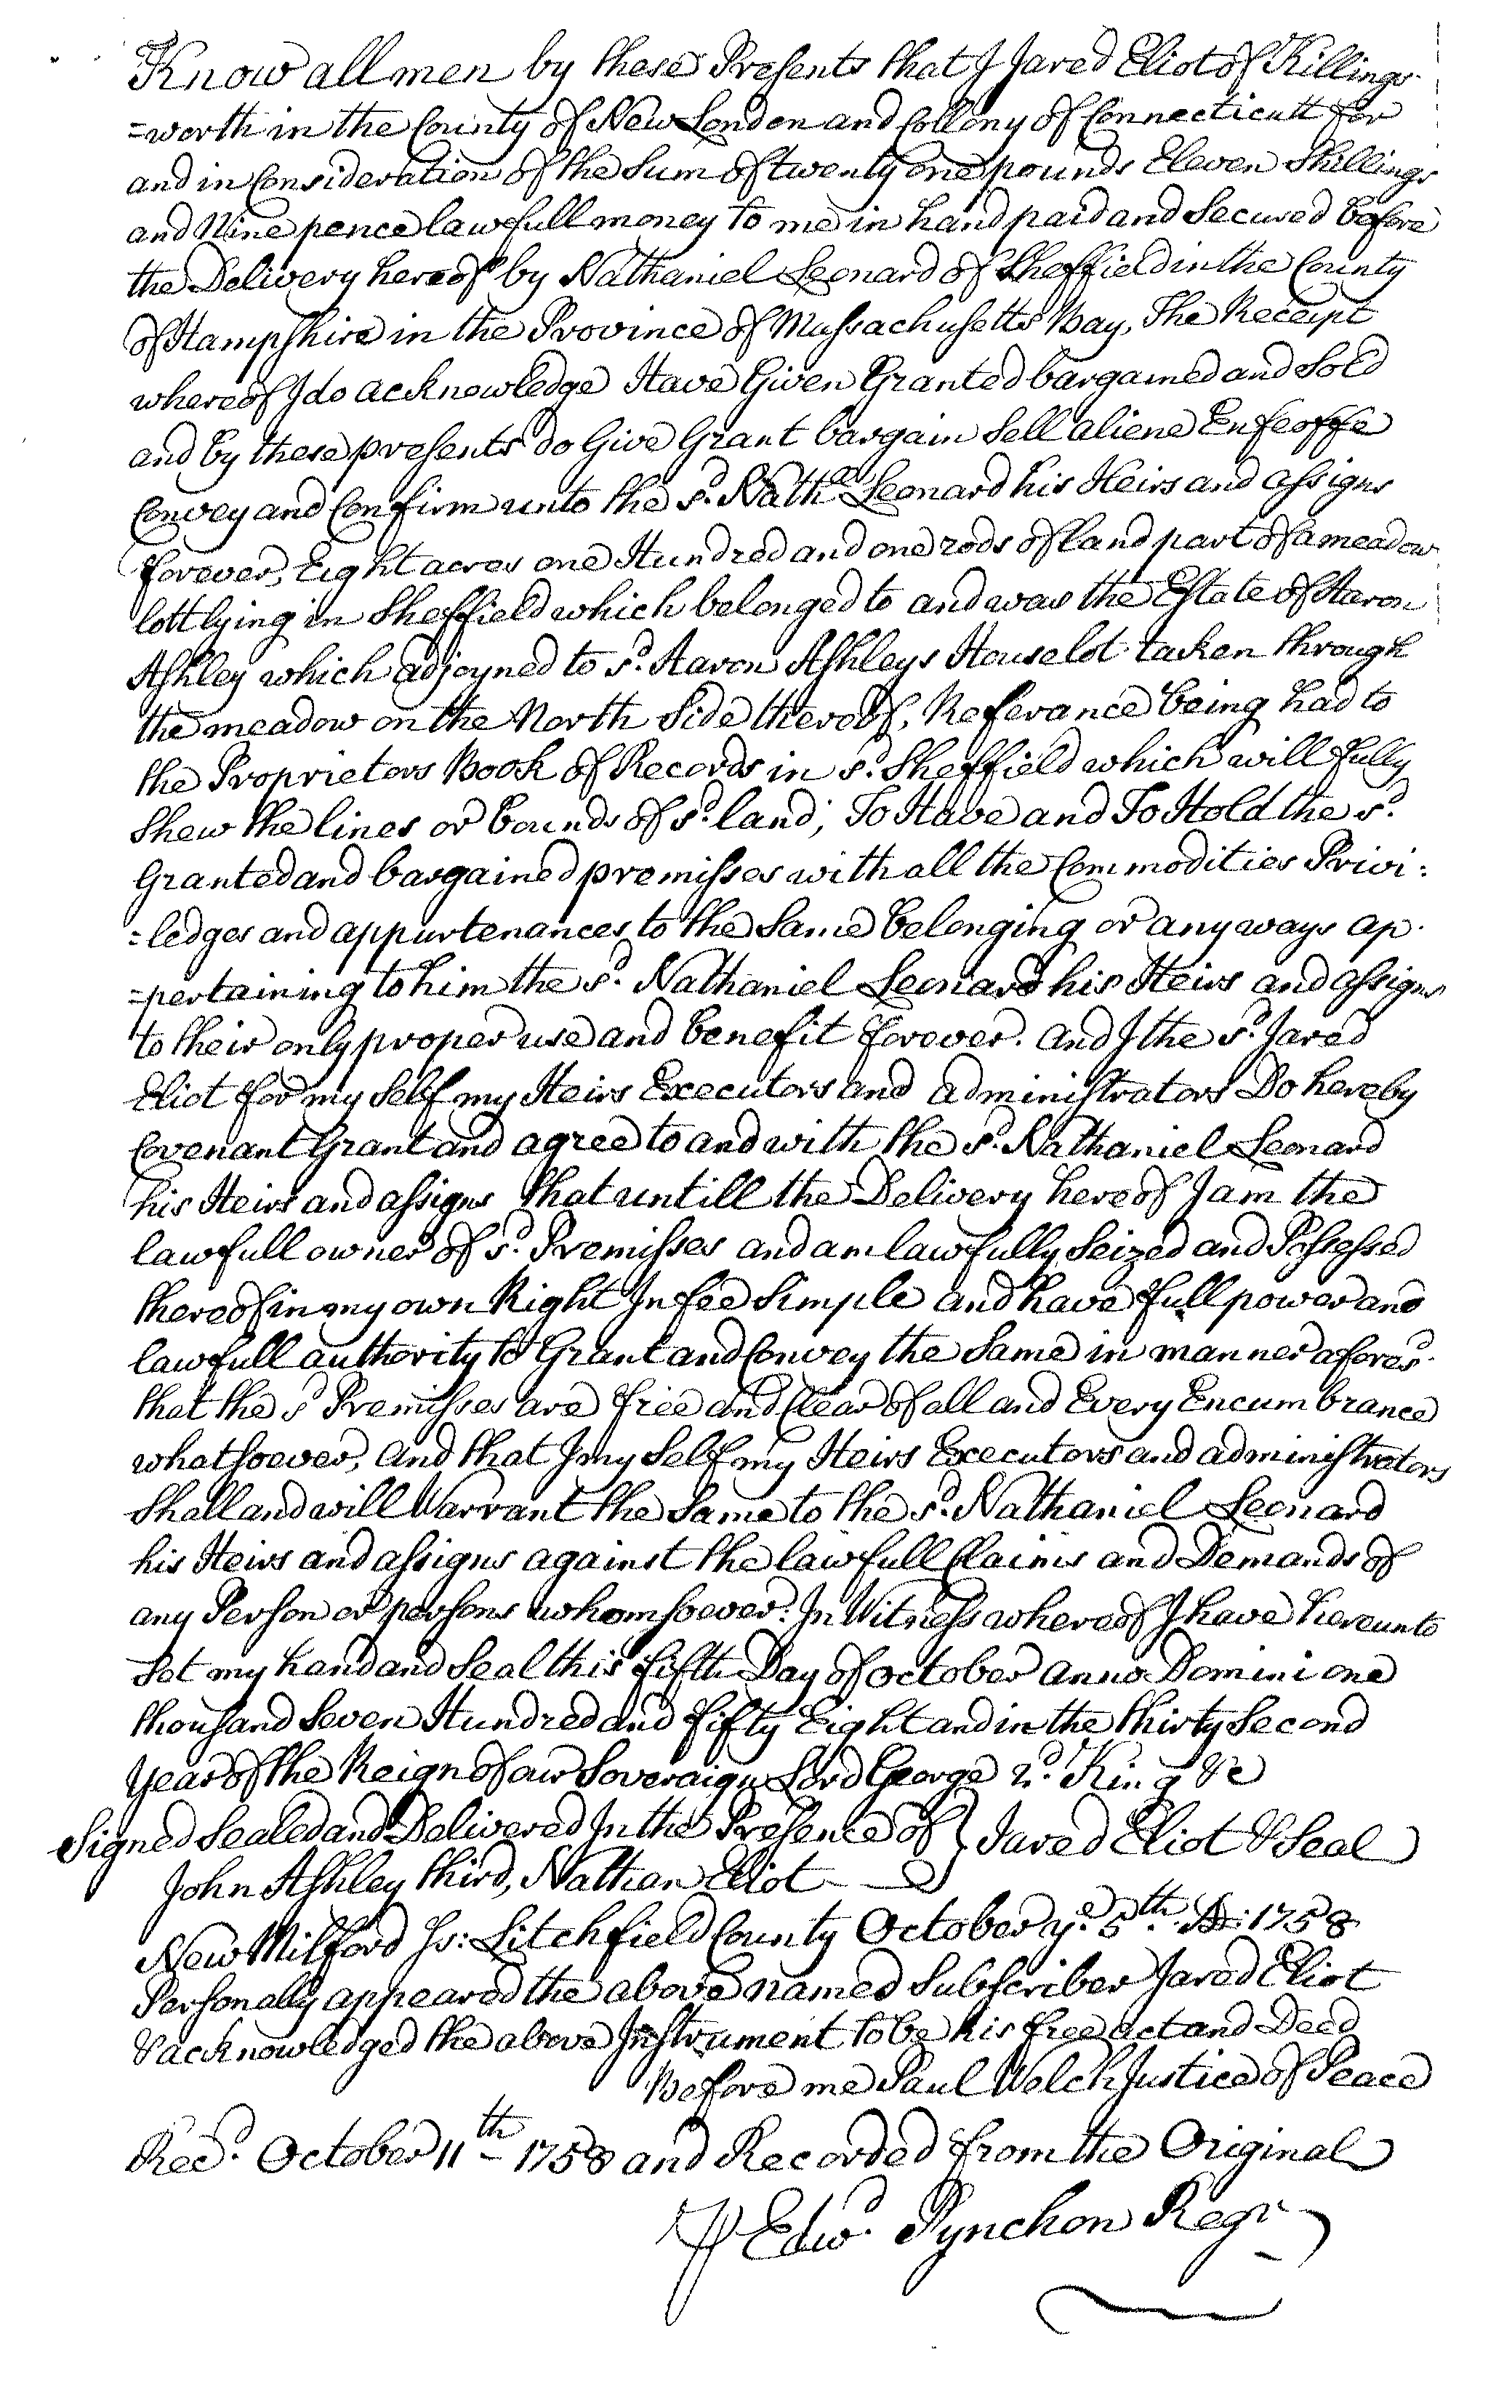 Know all men by these Presents that I Jared Eliot of Killings-
=worth in the County of New London and Collony of Connecticutt for
and in Consideration of the Sum of twenty one pounds Eleven Shillings
and Nine pence lawfull money to me in hand paid and Secured before
the Delivery hereof by Nathaniel Leonard of Sheffield in the County
of Hampshire in the Province of Massachusetts Bay, The Receipt
whereof I do acknowledge Have Given Granted bargained and Sold
and by these presents do Give Grant bargain Sell aliene Enfeoffe
Convey and Confirm unto the sd. Nathall Leonard his Heirs and assigns
forever, Eight acres one Hundred and one rods of land part of a meadow
lott lying in Sheffield which belonged to and was the Estate of Aaron
Ashley which adjoyned to sd. Aaron Ashleys Houselot taken through
the meadow on the North Side thereof, Referance being had to
the Proprietors Book of Records in sd. Sheffield which will fully
Shew the lines or bounds of sd. land; To Have and To Hold the sd.
Granted and bargained premisses with all the Commodities Privi:
=ledges and appurtenances to the Same belonging or any ways ap-
=pertaining to him the sd. Nathaniel Leonard his Heirs and assigns
to their only proper use and benefit forever. and I the sd. Jared
Eliot for my Self my Heirs Executors and administrators Do hereby
Covenant Grant and agree to and with the sd. Nathaniel Leonard
his Heirs and assigns that untill the Delivery hereof I am the
lawfull owner of sd. Premisses and am lawfully Seized and Possessed
thereof in my own Right In fee Simple and have full power and
lawfull authority to Grant and Convey the Same in manner aforesd.
that the sd Premisses are free and Clear of all and Every Encumbrance
whatsoever, and that I my Self my Heirs Executors and administrators
Shall and will Warrant the Same to the sd. Nathaniel Leonard
his Heirs and assigns against the lawfull Claims and Demands of
any Person or persons whomsoever. In Witness whereof I have hereunto
Set my hand and Seal this fifth Day of October anno Domini one
thousand Seven Hundred and fifty Eight and in the thirty Second
Year of the Reign of our Soveraign Lord George 2d. King &c
Signed Sealed and Delivered In the Presence of } Jared Eliot & Seal
John Ashley third, Nathan Eliot
New Milford Ss: Litchfield County October ye. 5th. AD: 1758
Personally appeared the above named Subscriber Jared Eliot
& acknowledged the above Instrument to be his free act and Deed
Before me Paul Welch Justice of Peace
Recd. October 11th 1758 and Recorded from the Original
P Edwd. Pynchon Regr